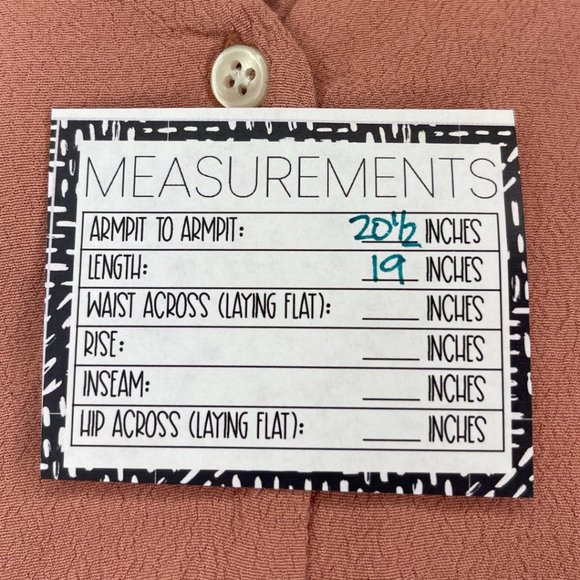 MEASUREMENTS
ARMPIT TO ARMPIT: 20 1/2 INCHES
LENGTH: 19 INCHES
WAIST ACROSS (LAYING FLAT): ___ INCHES
RISE: ___ INCHES
INSEAM: ___ INCHES
HIP ACROSS (LAYING FLAT): ___ INCHES